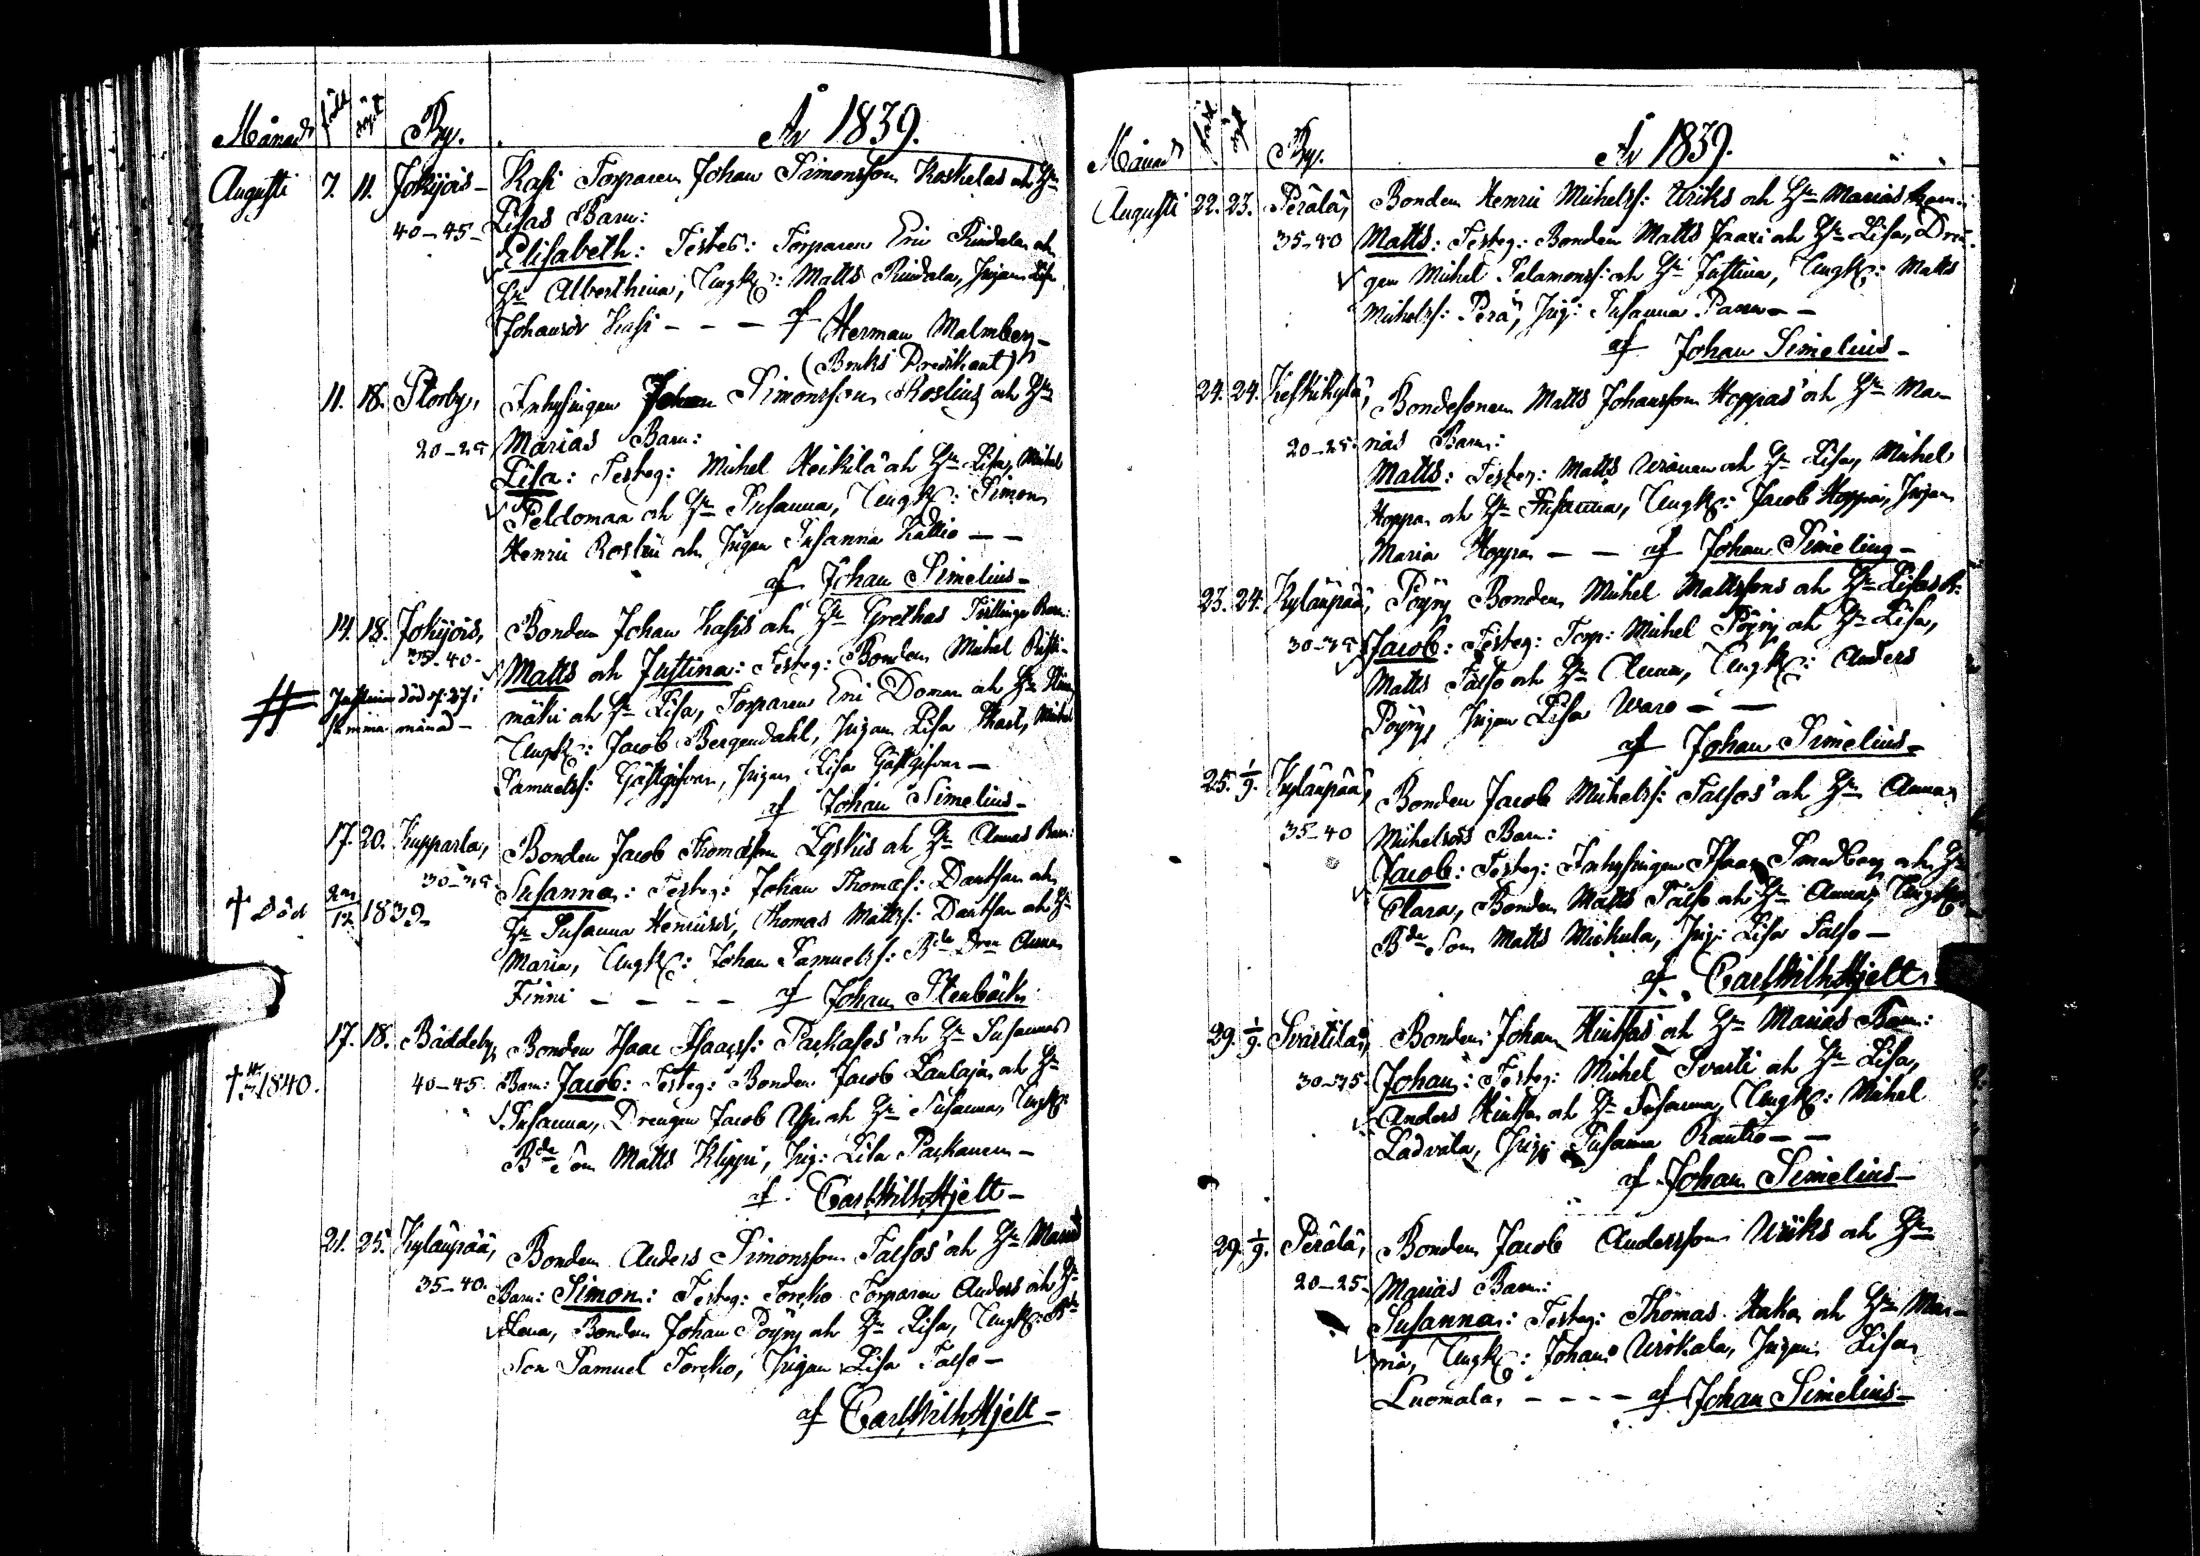 Månad född döpt By. År 1839.
Augusti 7. 11. Jokijois- Kasi Torparen Johan Simonsson Koskelas och Hu
40-45- Lisas Barn:
Elisabeth: Testes: Torparen Eric Rindala och
Hu Alberthina, Ungk: Matts Rindala, Pigan Lisa
Johansdr Kasi - - - af Herman Malmberg-
(Bruks Predikant)
11. 18. Storby, Inhysingen Johan Simonsson Roslins och Hu
20-25 Marias Barn:
Lisa: Testeg: Michel Heikilä och Hu Lisa, Michel
Peldomaa och Hu Susanna, Ungk: Simon
Henric Roslin och Pigan Susanna Kallio - -
af Johan Simelius-
14. 18. Jokijois, Bonden Johan Kasis och Hu Grethas Tvillinge Barn:
35-40- Matts och Justina: Testeg: Bonden Michel Risti-
# Justina död d. 27 i mäki och Hu Lisa, Torparen Eric Doman och Hu
samma månad- Ungk: Jacob Bergendahl, Pigan Lisa Michel
Samuelss: Gästgifvar, Pigan Lisa Gästgifvar -
af Johan Simelius-
17. 20. Kupparla, Bonden Jacob Thomasson Lyskis och Hu Annas Barn:
30-35 Susanna: Testeg: Johan Thomass: Danthan och
† död 12 1839 Hu Susanna Henricsdr, Thomas Mattss: Danthan och Hu
Maria, Ungk: Johan Samuelss: Bde Dren Anna
Finni - - - - af Johan Stenbäck
17. 18. Bäddeby, Bonden Isaac Isaacss: Packases och Hu Susannas
† 1840. 40-45. Barn: Jacob: Testeg: Bonden Jacob Laulaja och Hu
Susanna, Drengen Jacob och Hu Susanna, Ungk:
Bde Son Matts Klippi, Pig: Lisa Packanen -
af Carl Wilh Hjelt-
21. 25. Kylänpää, Bonden Anders Simonsson Talsos och Hu Marias
35-40. Barn: Simon: Testeg: Torcko Torparen Anders och Hu
Lena, Bonden Johan Pöyry och Hu Lisa, Ungk: Bde
Son Samuel Torcko, Pigan Lisa Talso -
af Carl Wilh Hjelt-
Månad född döpt By. År 1839.
Augusti 22. 23. Perälä, Bonden Henric Michelss: Uriks och Hu Marias Barn:
35-40 Matts: Testeg: Bonden Matts Jaari och Hu Lisa, Dren-
gen Michel Salamonss: och Hu Justina, Ungk: Matts
Michelss: Perä, Pig: Susanna - -
af Johan Simelius-
24. 24. Keskikylä, Bondesonen Matts Johansson Hoppas och Hu Ma-
20-25. rias Barn:
Matts: Testeg: Matts och Hu Lisa, Michel
Hoppa och Hu Susanna, Ungk: Jacob Hoppa, Pigan
Maria Hoppa - - af Johan Simelius-
23. 24. Kylänpää, Pöyry Bonden Michel Mattssons och Hu Lisas B:
30-35 Jacob: Testeg: Torp: Michel Pöyry och Hu Lisa,
Matts Talso och Hu Anna, Ungk: Anders
Pöyry, Pigan Lisa Waro - -
af Johan Simelius-
25. 1/9. Kylänpää, Bonden Jacob Michelss: Talsos och Hu Anna
35-40 Michelsdrs Barn:
Jacob: Testeg: Inhysingen Isaac Sandberg och Hu
Clara, Bonden Matts Talso och Hu Anna, Ungk:
Bde Son Matts Mickula, Pig: Lisa Talso -
af Carl Wilh Hjelt.
29. 1/9. Svartila, Bonden Johan Hinthas och Hu Marias Barn:
30-35. Johan: Testeg: Michel Svarti och Hu Lisa,
Anders Hintha och Hu Susanna, Ungk: Michel
Ladvala, Pig: Susanna Rantio - -
af Johan Simelius-
29. 1/9. Perälä, Bonden Jacob Andersson Uriks och Hu
20-25- Marias Barn:
Susanna: Testeg: Thomas Haka och Hu Ma-
ria, Ungk: Johan Urikala, Pigan Lisa
Luomala, - - - - af Johan Simelius-